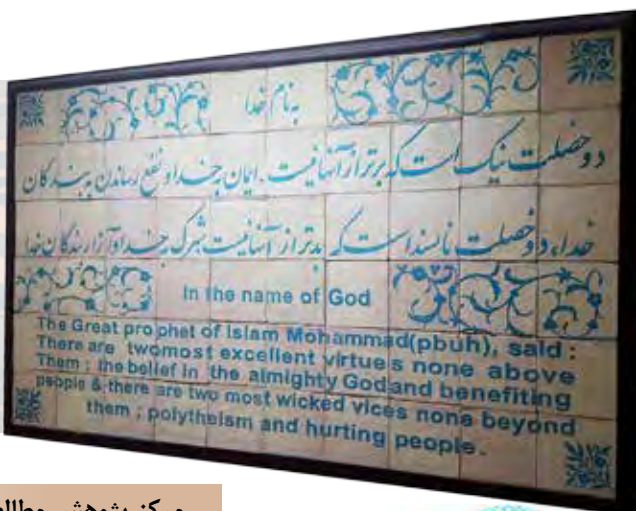 به نام خدا
دو خصلت نیک است که برتر از آنها نیست . ایمان به خدا و نفع رساندن به بندگان
خدا، دو خصلت ناپسند است که بدتر از آنها نیست شرک به خدا و آزار بندگان خدا
In the name of God
The Great prophet of Islam Mohammad(pbuh), said :
There are twomost excellent virtues none above
Them ; the belief in the almighty God and benefiting
people & there are two most wicked vices none beyond
them ; polytheism and hurting people .
مرکز پژوهشی